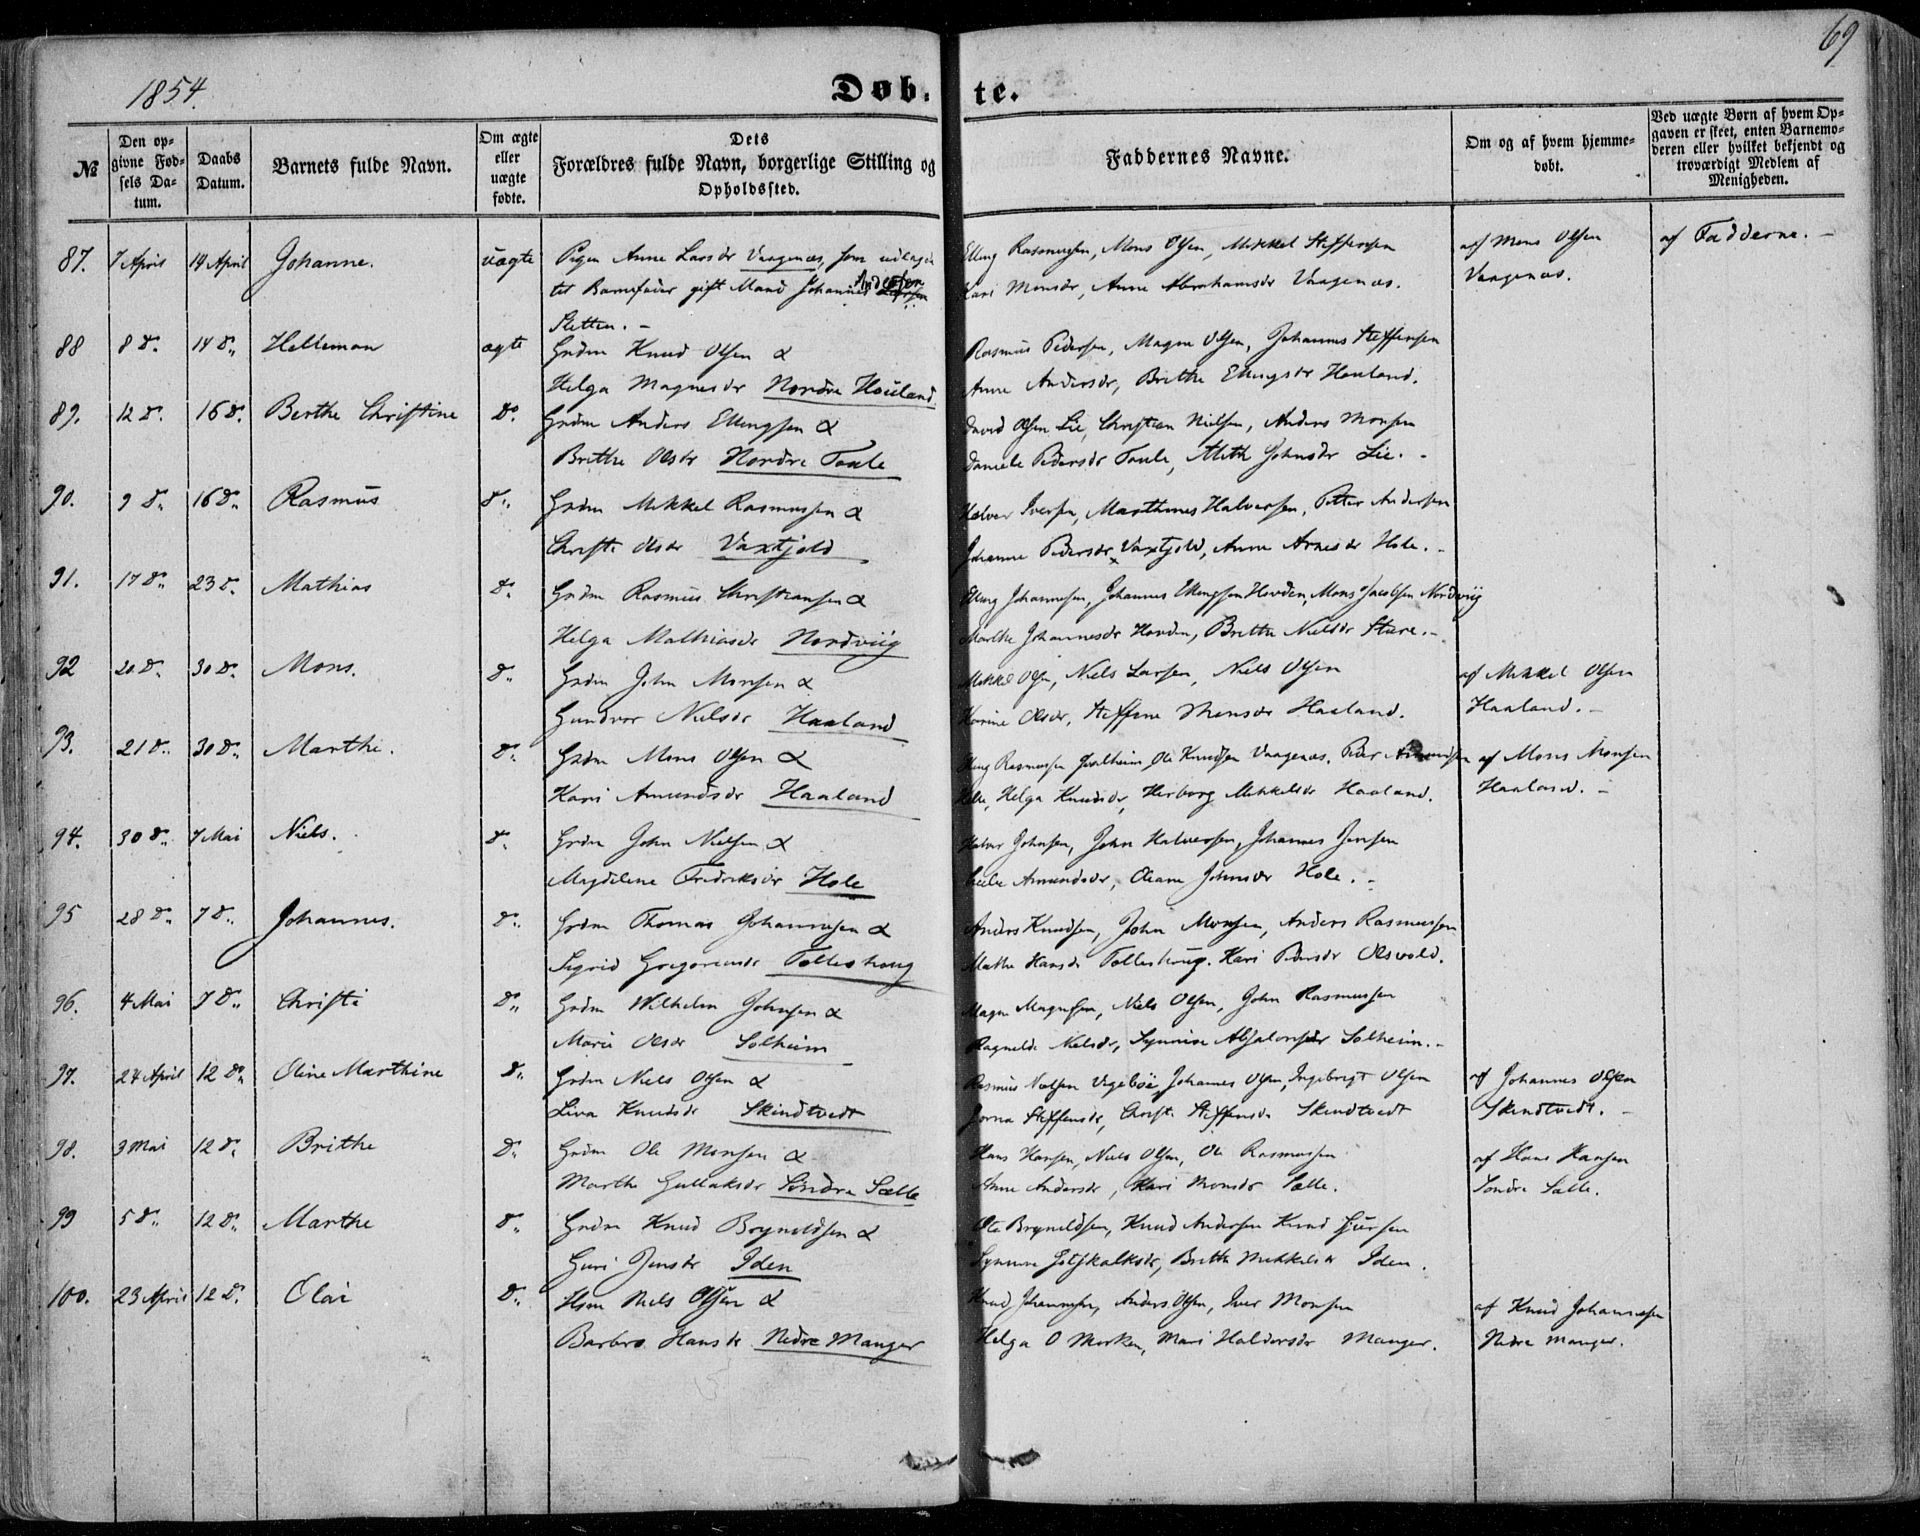 1854.
Døb.
te.
69
№
Den op-
givne Fød-
sels Da-
tum.
Daabs
Datum.
Barnets fulde Navn.
Om ægte
eller
uægte
fødte.
Dets
Forældres fulde Navn, borgerlige Stilling og
Opholdssted.
Faddernes Navne.
Om og af hvem hjemme-
døbt.
Ved uægte Børn af hvem Op-
gaven er skeet, enten Barnemo-
deren eller hvilket bekjendt og
troværdigt Medlem af
Menigheden.
87. 7 April 14 April Johanne. uægte Pigen Anne Larsdr Vaagenæs, som udlagde Elling Rasmussen, Mons Olsen, Mikkel Steffensen af Mons Olsen af Fadderne. -
til Barnefader gift Mand Johannes Andersen Kari Monsdr, Anne Abrahamsdr Vaagenæs. Vaagenæs.
Sletten. -
88 8 D. 14 D. Helleman ægte Grdm Knud Olsen & Rasmus Pedersen, Magne Olsen, Johannes Steffensen
Helga Magnesdr Nordre Houland. Anne Andersdr, Brithe Ellingsdr Houland.
89. 12 D. 16 D. Berthe Christine D. Grdm Anders Ellingsen & David Olsen Lie, Christian Nielsen, Anders Monsen
Brithe Olsdr Nordre Toule Daniele Pedersdr Toule, Aleth Johnsdr Lie. -
90. 9 D. 16 D. Rasmus D. Grdm Mikkel Rasmussen & Halvor Iversen, Marthinus Halversen, Petter Andersen
Christi Olsdr Vaxtjold Johanne Pedersdr Vaxtjold, Anne Arnesdr Hole. -
91. 17 D. 23 D. Mathias D. Grdm Rasmus Christiansen & Elling Johannesen, Johannes Ellingsen Hovden, Mons Jacobsen Nordviig
Helga Mathiasdr Nordviig Marthe Johannesdr Hovden, Brithe Nielsdr Stare. -
92 20 D. 30 D. Mons. D. Grdm John Monsen & Mikkel Olsen, Niels Larsen, Niels Olsen af Mikkel Olsen
Gundvor Nielsdr Haaland Karine Olsdr, Steffine Monsdr Haaland. Haaland. -
93. 21 D. 30 D. Marthe. D. Grdm Mons Olsen & Elling Rasmussen Ole Knudsen Vaagenæs, Peder af Mons Monsen
Kari Amundsdr Haaland Helle, Helga Knudsdr, Herborg Mikkelsdr Haaland. Haaland. -
94. 30 D. 7 Mai Niels. D. Grdm John Nielsen & Halvor Johnsen, John Halversen, Johannes Jensen
Magdelene Fredriksdr Hole Amundsdr, Oleane Johnsdr Hole. -
95 28 D. 7 D. Johannes. D. Grdm Thomas Johannesen & Anders Knudsen, John Monsen, Anders Rasmussen
Sigrid Gregoriusdr Tolleshoug Mathe Hansdr Tolleshoug. Kari Pedersdr Olsvold.
96. 4 Mai 7 D. Christi D. Grdm Wilhelm Johnsen & Magne Magnesen, Niels Olsen, John Rasmussen
Marie Olsdr Solheim Ragnelde Nielsdr, Synneve Absalonsdr Solheim. -
97. 24 April 12 D. Oline Marthine D. Grdm Niels Olsen & Rasmus Nielsen Vegebøe, Johannes Olsen, Ingebrigt Olsen af Johannes Olsen
Liva Knudsdr Skindtvedt Jorna Steffensdr, Christi Steffensdr Skindtvedt Skindtvedt. -
98. 3 Mai 12 D. Brithe D. Grdm Ole Monsen & Hans Hansen, Niels Olsen, Ole Rasmussen af Hans Hansen
Marthe Gullaksdr Søndre Sælle Anne Andersdr, Kari Monsdr Sælle. Søndre Sælle.
99 5 D. 12 D. Marthe D. Grdm Knud Brynildsen & Ole Brynildsen, Knud Andersen Knud
Guri Jensdr Iden Synneve Gotskalksdr, Brithe Mikkelsdr Iden.
100. 23 April 12 D. Olai D. Hsm Niels Olsen & Knud Johannesen, Anders Olsen, Iver Monsen af Knud Johannesen
Barbro Hansdr Nedre Manger Helga O Merken, Mari Haldorsdr Manger. Nedre Manger.